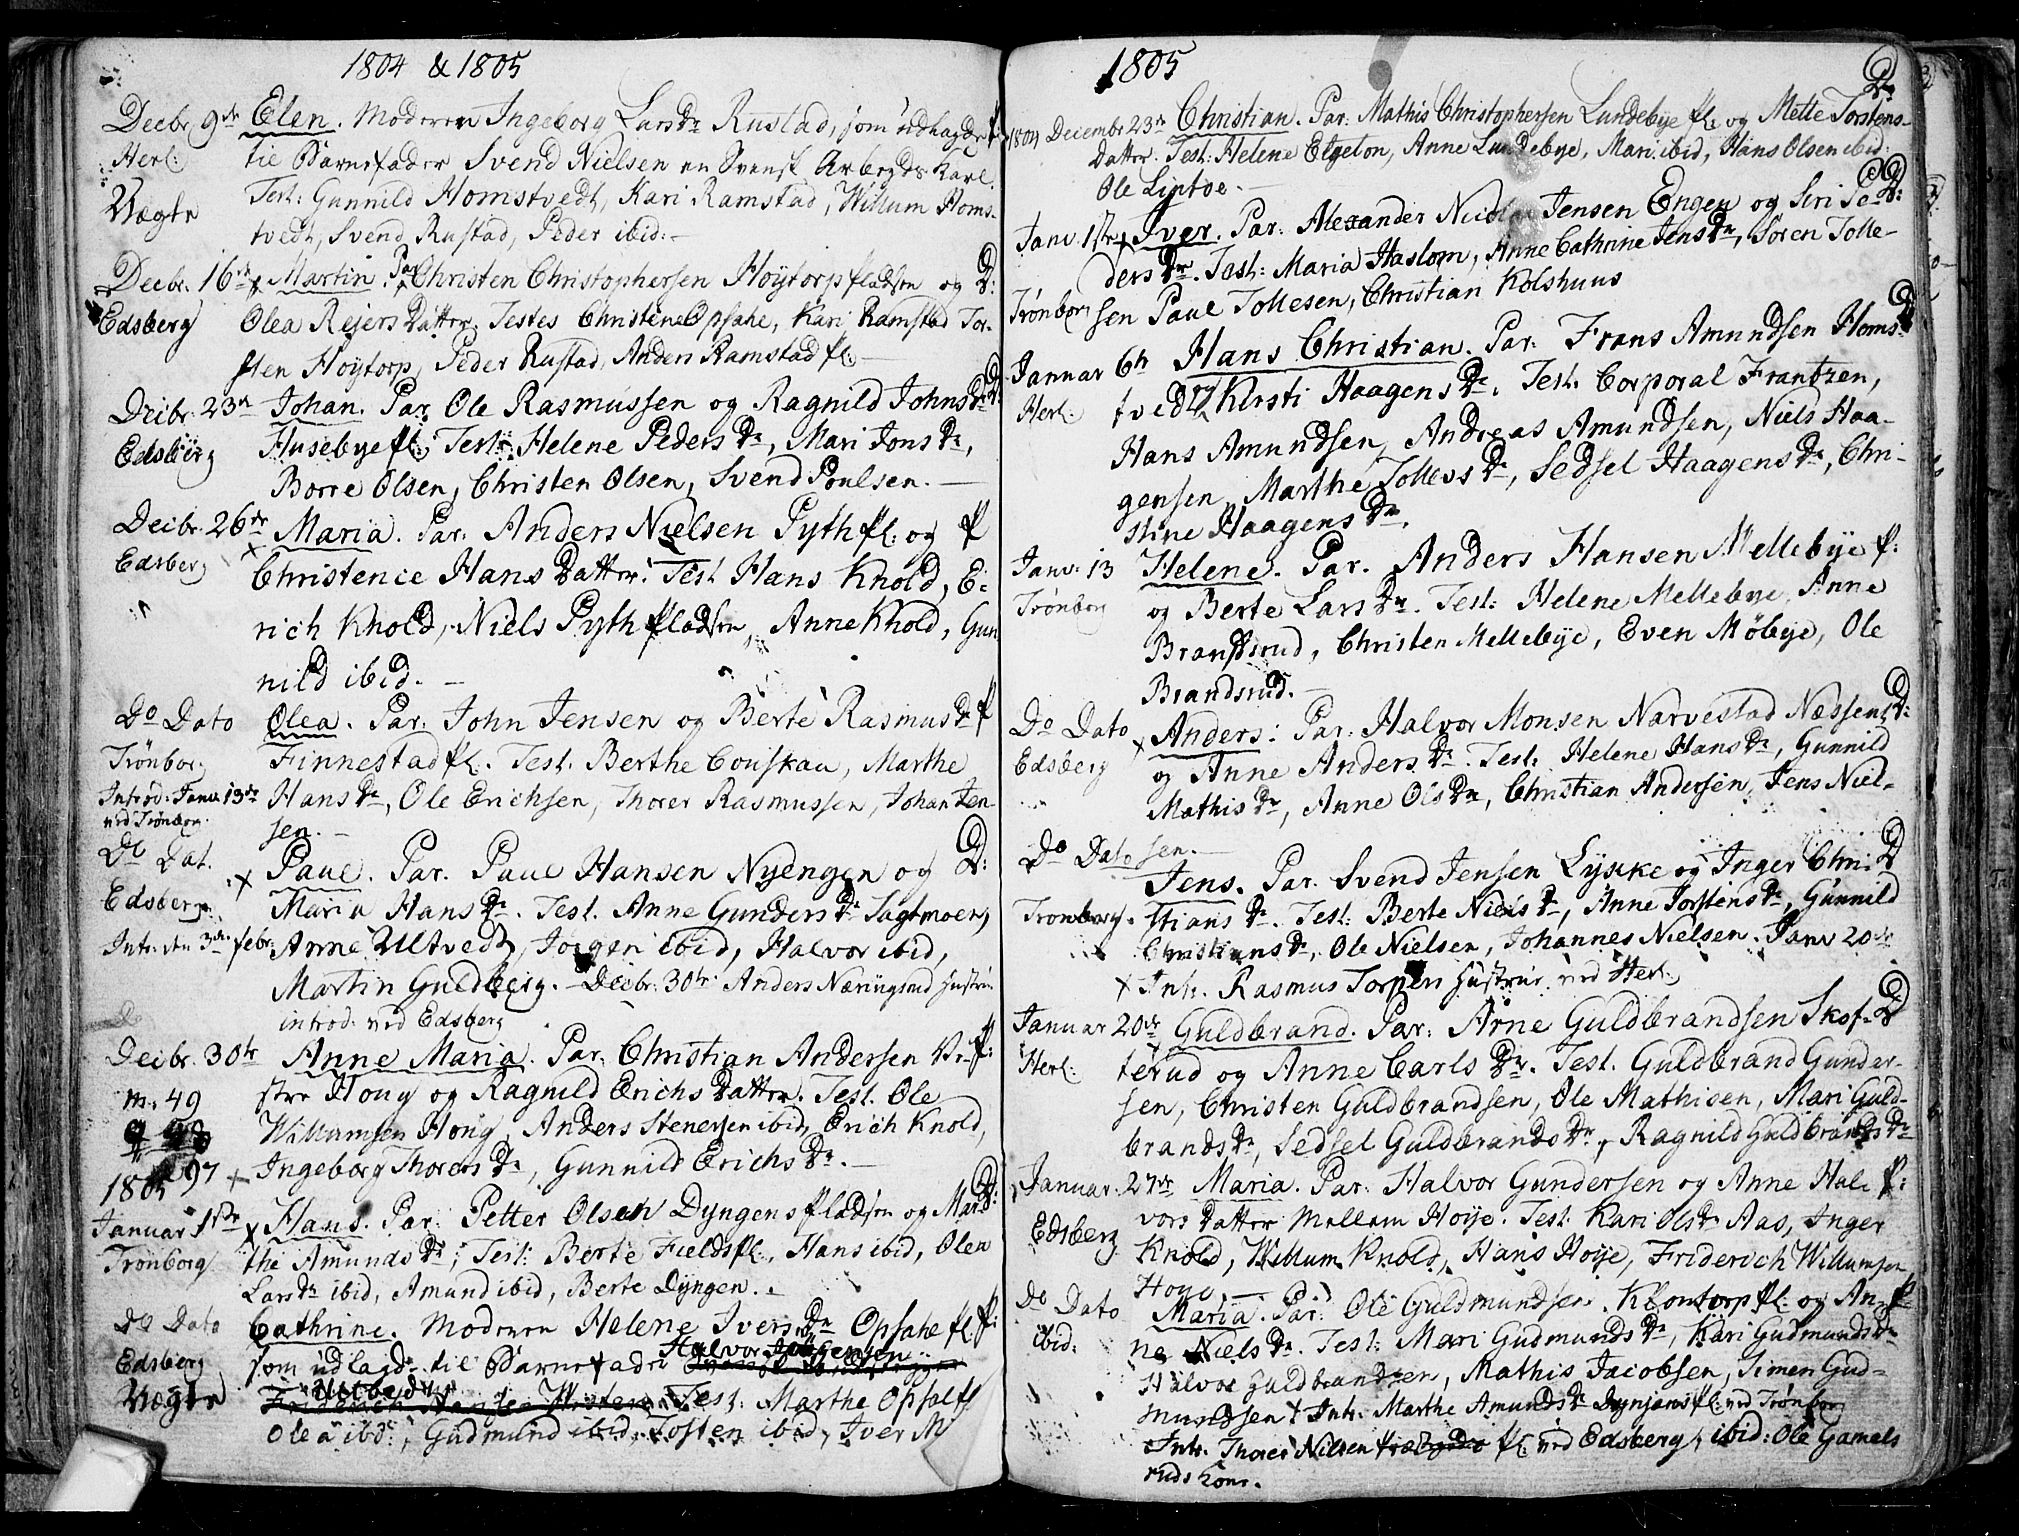 1804 & 1805
Decbr. 9de Elen. Moderen Ingeborg Larsdr Rustad, som udlagde f
Herl: til Barnefader Svend Nielsen en Svensk Arbeyds Karl.
Test: Gunnild Homstvedt, Kari Ramstad, Willum Homs-
Uægte tvedt, Svend Rustad, Peder ibid:
Decbr. 16de Martin. Par. Christen Christophersen Høytorp pladsen og D:
Edsberg Olea Rejers Datter. Testes Christine Opsahl, Kari Ramstad Tor-
sten Høytorp, Peder Rustad, Anders Ramstad pl:
Decbr. 23de Johan. Par. Ole Rasmussen og Ragnild Johnsdr D:
Edsberg Husebye pl: Test: Helene Pedersdr, Mari Jonsdr,
Borre Olsen, Christen Olsen, Svend Poulsen.
Decbr. 26de Maria. Par: Anders Nielsen Pyth pl: og f
Edsberg Christence Hans Datter. Test Hans Knold, E-
rich Knold, Niels Pyth pladsen, Anne Knold, Gun
nild ibid.
Do Dato Olea. Par: John Jensen og Berte Rasmusdr f
Trønborg Finnestad pl. Test. Berthe Couskau, Marthe
Introd. Janv. 13de Hansdr, Ole Erichsen, Thorer Rasmussen, Johan Jen-
ved Trønborg. sen.
Do Dat. Paul. Par. Paul Hansen Nyengen og D:
Edsberg Maria Hansdr. Test. Anne Gundersdr Sagtmoen,
Intr. den 3die Febr: Anne Ultvedt, Jørgen ibid, Halvor ibid,
Martin Guldberg. Decbr: 30te Anders Næringsrud Hustru
introd. ved Edsberg
Decbr. 30te Anne Maria. Par: Christian Andersen Ve- f:
m. 49 stre Houg og Ragnild Erichs Datter. Test. Ole
Willumsen Houg, Anders Stenersen ibid, Erich Knold,
97 Ingeborg Thorersdr, Gunnild Erichsdr.
1805
Januar 1ste Hans. Par: Petter Olsen Dyngens pladsen og Mar- D:
Trønborg the Amundsdr, Test: Berte Fields pl., Hans ibid, Olea
Larsdr ibid, Amund ibid, Berte Dyngen.
Do Dato Cathrine. Moderen Helene Iversdr Opsahl pl. f:
Edsberg som udlagde til Barnefader Halvor
Uægte Test: Marthe Opsal
Olea ibd:, Gudmund ibid, Tosten ibid, Iver
1805
1804 Decembr 23de Christian. Par: Mathis Christophersen Lundebye pl: og Mette Torstens- D:
Datter. Test: Helene Elgeton, Anne Lundebye, Mari ibid, Hans Olsen ibid:
Ole Lintoe.
Janv. 1ste Iver. Par: Alexander Nicolai Jensen Engen og Siri Pe- D:
dersdr. Test: Maria Haslom, Anne Cathrine Jensdr, Søren Tolle-
Trønborg sen Paul Tollesen, Christian Kolshuus
Januar 6te Hans Christian. Par: Frans Amundsen Homs- D
Herl: tvedt og Kirsti Haagensdr. Test. Corporal Frantzen,
Hans Amundsen, Andreas Amundsen, Niels Haa-
gensen, Marthe Tollevsdr, Sedsel Haagensdr, Chri-
stine Haagensdr.
Janv: 13 Helene. Par. Anders Hansen Mellebye f:
Trønborg og Berte Larsdr. Test: Helene Mellebye, Anne
Brandsrud, Christen Mellebye, Even Møbye, Ole
Brandsrud.
Do Dato Anders: Par: Halvor Monsen Narvestad Næssen D:
Edsberg og Anne Andersdr. Test: Helene Hansdr, Gunnild
Mathisdr, Anne Olsdr, Christian Andersen, Jens Niel-
sen.
Do Dato Jens. Par. Svend Jensen Lykke og Inger Chri D
Trønborg. stiansdr. Test: Berte Nielsdr, Anne Torstensdr, Gunnild
Christiansdr, Ole Nielsen, Johannes Nielsen. Janv 20de
Intr. Rasmus Torpers Hustrue ved Herl:
Januar 20de Guldbrand. Par: Arne Guldbrandsen Skof- D
Herl: terud og Anne Carlsdr. Test. Guldbrand Gunder-
sen, Christen Guldbrandsen, Ole Mathisen, Mari Guld-
brandsdr, Sedsel Guldbrandsdr, Ragnild Guldbrandsdr
Januar: 27de Maria. Par: Halvor Gundersen og Anne Hal- f:
Edsberg vors Datter Mellem Høije. Test. Kari Olsdr Aas, Inger
Knold, Willum Knold, Hans Høije, Friderich Willumsen
Høye.
Do Dato Maria. Par: Ole Guldmundsen Klontorp pl: og An- f
ibid: ne Nielsdr. Test: Mari Gudmundsdr, Kari Gudmundsdr
Halvor Guldbrandsen, Mathis Jacobsen, Simen Gud-
mundsen. Intr. Marthe Amundsdr Dynjans pl: ved Trønborg
Intr. Thorer Nilsen pl: ved Edsberg, ibid: Ole Gamels
ruds Kone.